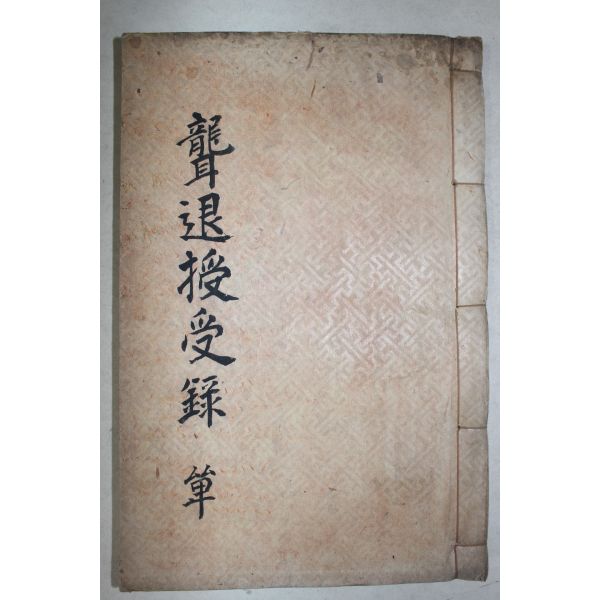 聾退授受錄 單